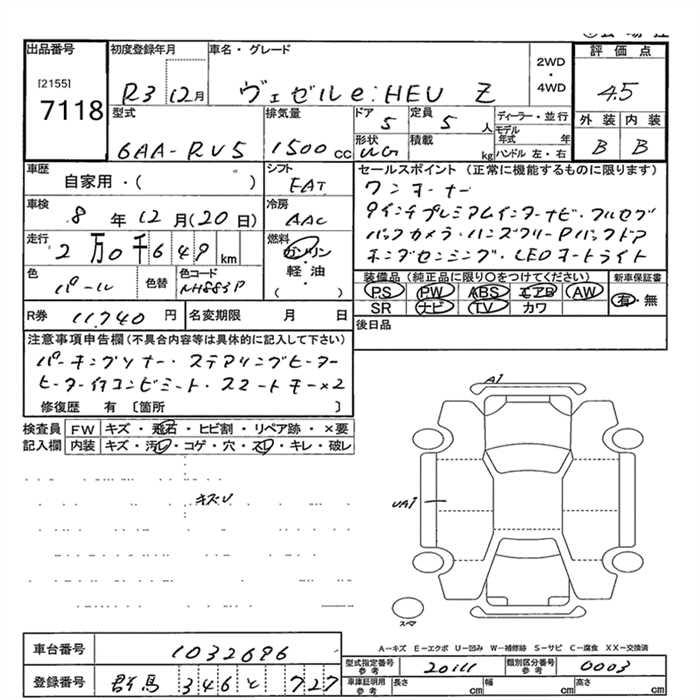 出品番号 初度登録年月 車名・グレード 2WD・4WD 評価点
[2155]
7118 R3 12月 ヴェゼル e:HEV Z 4.5
型式 排気量 ドア 5 定員 5 人 ディーラー・並行 外装 内装
6AA-RV5 1500 cc 形状 積載 kg モデル年式 年 ハンドル 左・右 B B
車歴 自家用・( ) シフト FAT セールスポイント (正常に機能するものに限ります)
ワンオーナー
車検 8 年 12 月 (20 日) 冷房 AAC
9インチプレミアムインターナビ・フルセグ
走行 2 万 0 千 6 4 9 km 燃料 ガソリン・軽油 ( )
バックカメラ・ハンズフリーPバックドア
ホンダセンシング・LEDオートライト
色 パール 色替 色コード NH883P
装備品 (純正品に限り〇をつけてください) 新車保証書
PS PW ABS エアB AW 有・無
SR ナビ TV カワ
R券 11,740 円 名変期限 月 日 後日品
注意事項申告欄 (不具合内容等は具体的に記入して下さい)
パーキングソナー・ステアリングヒーター
ヒーター付コンビシート・スマートキー×2
修復歴 有 [箇所 ]
検査員記入欄 FW キズ・飛石・ヒビ割・リペア跡・×要
内装 キズ・汚レ・コゲ・穴・スレ・キレ・破レ
A1
キズU
UA1
スマ
A−キズ E−エクボ U−凹み W−補修跡 S−サビ C−腐食 XX−交換済
車台番号 1032696
型式指定番号 参考 20111 類別区分番号 参考 0003
登録番号 群馬 346 と 727
車庫証明用 参考 長さ cm 幅 cm 高さ cm